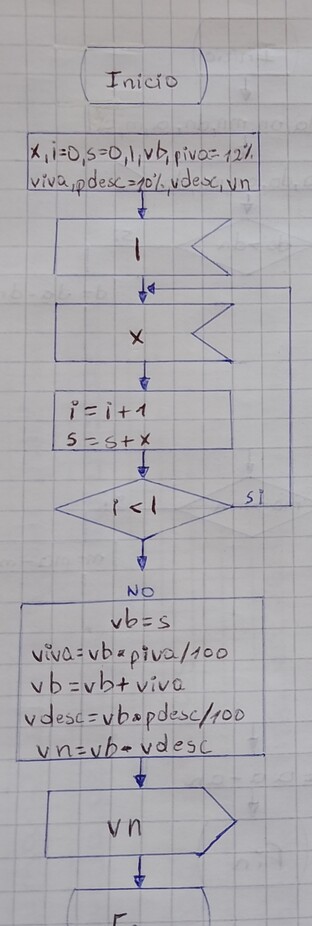 Inicio
x, i=0, s=0, l, vb, piva=12%
viva, pdesc=10%, vdesc, vn
l
x
i = i+1
s = s+x
i < l
si
NO
vb = s
viva=vb*piva/100
vb=vb+viva
vdesc=vb*pdesc/100
vn=vb-vdesc
vn